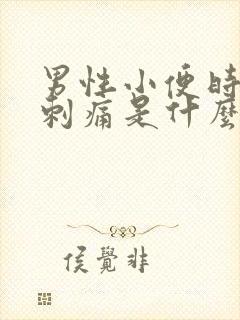 男性小便時
刺痛是什麼
侯覺非